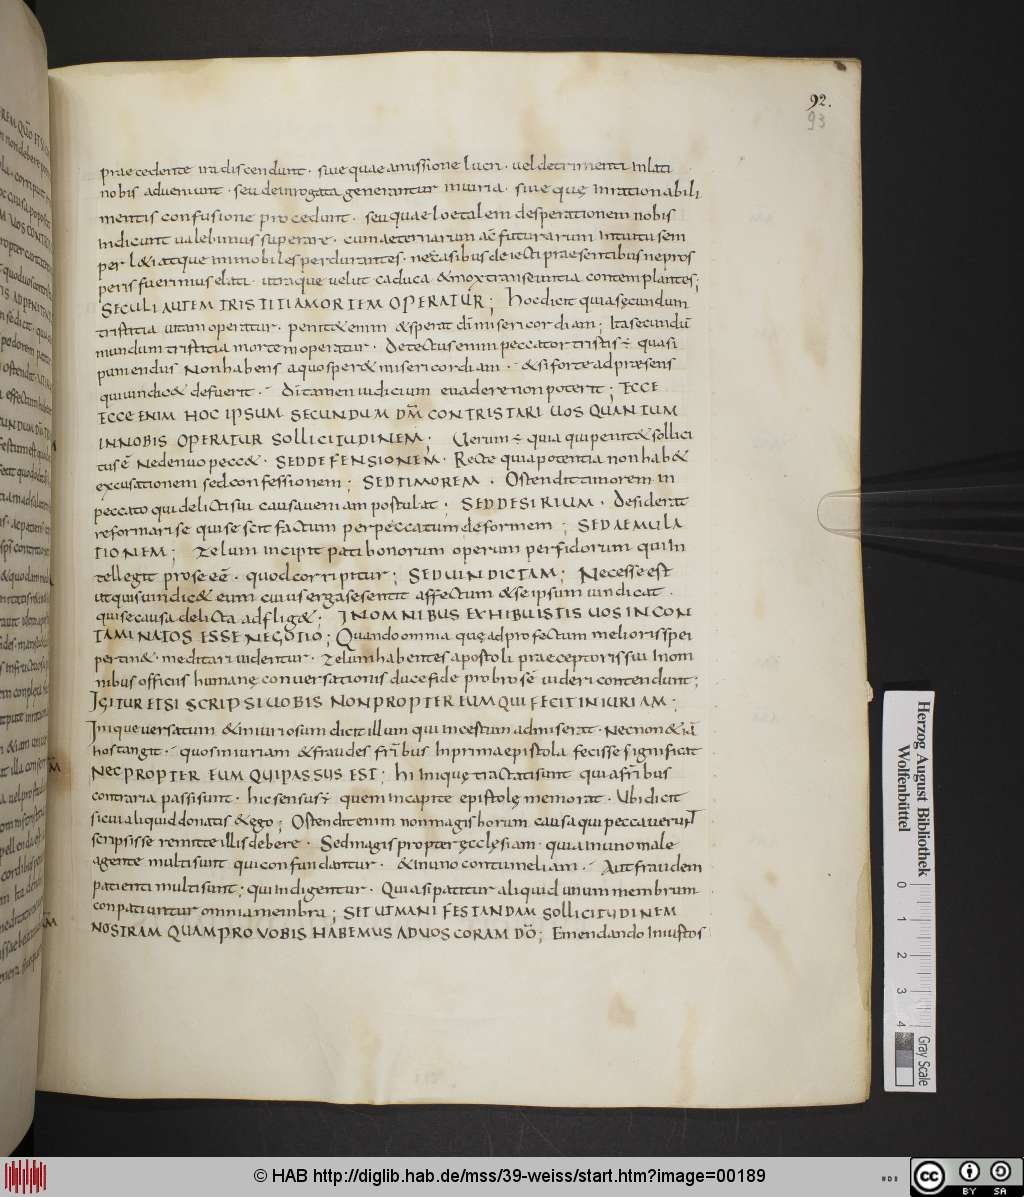 92.
93
praecedente ira discendunt · siue quae amissione lucri · uel detrimenti inlati
nobis adueniunt · seu de inrogata generantur iniuria · siue quę inrationabili
mentis confusione procedunt · seu quae loetalem desperationem nobis
indicunt ualebimus superare · cum aeternarum ac futurarum intuitu sem
per l&i atque immobiles perdurantes · nec casibus deiecti praesentibus nec pros
peris fuerimus elati · utraque uelut caduca & mox transeuntia contemplantes;
SECULI AUTEM TRISTITIA MORTEM OPERATUR; Hoc dicit quia secundum
tristitia uitam operatur · penit& enim & sperat dī misericordiam; Ita secundū
mundum tristitia mortem operatur · Detectus enim peccator tristis ÷ quasi
puniendus Non habens a quo sper& misericordiam · & si forte ad praesens
qui uindic& defuerit · dī tamen iudicium euadere non poterit; ECCE
ECCE ENIM HOC IPSUM SECUNDUM DM̄ CONTRISTARI UOS QUANTUM
IN NOBIS OPERATUR SOLLICITUDINEM; Uerum ÷ quia qui penit& sollici
tus ē Ne denuo pecc& · SED DEFENSIONEM · Recte quia potentia non hab&
excusationem sed confessionem; SED TIMOREM · Ostendit timorem in
peccato qui delicti sui causa ueniam postulat; SED DESIRIUM · Desiderat
reformari se qui se scit factum per peccatum deformem; SED AEMULA
TIONEM; Zelum incipit pati bonorum operum perfidorum qui in
tellegit pros eē · quod corripitur; SED UINDICTAM; Necesse est
ut quis uindic& eum cuius erga se sentit affectum & se ipsum uindicat ·
qui se causa delicta adflig&; IN OMNIBUS EXHIBUISTIS UOS INCON
TAMINATOS ESSE NEGOTIO; Quando omnia quę ad profectum melioris spei
pertin& · meditari uidentur · Zelum habentes apostoli praeceptoris sui In om
nibus officiis humanę conuersationis duce fide probros ē uideri contendunt;
IGITUR ETSI SCRIPSI UOBIS NON PROPTER EUM QUI FECIT INIURIAM;
Inique uersatum & iniuriosum dicit illum qui incestum admiserat · Necnon & iā
hos tangit · quos iniuriam & fraudes frībus In prima epistola fecisse significat
NEC PROPTER EUM QUI PASSUS EST; hi Inique tractati sunt qui a frībus
contraria passi sunt · hic sensus ÷ quem in capite epistolę memorat · Ubi dicit
sicui aliquid donatis & ego; Ostendit enim non magis horum causa qui peccauerunt
scripsisse remitte illis debere · Sed magis propter ecclesiam · quia in uno male
agente multi sunt qui confundantur · & in uno contumeliam · Aut fraudem
patienti multi sunt; qui indigentur · Quia si patitur aliquid unum membrum
conpatiuntur omnia membra; SET UT MANIFESTANDAM SOLLICITUDINEM
NOSTRAM QUAM PRO VOBIS HABEMUS AD UOS CORAM DŌ; Emendando Iniustos
Herzog August Bibliothek
Wolfenbüttel
0 1 2 3 4
Gray Scale
© HAB http://diglib.hab.de/mss/39-weiss/start.htm?image=00189
cc BY SA